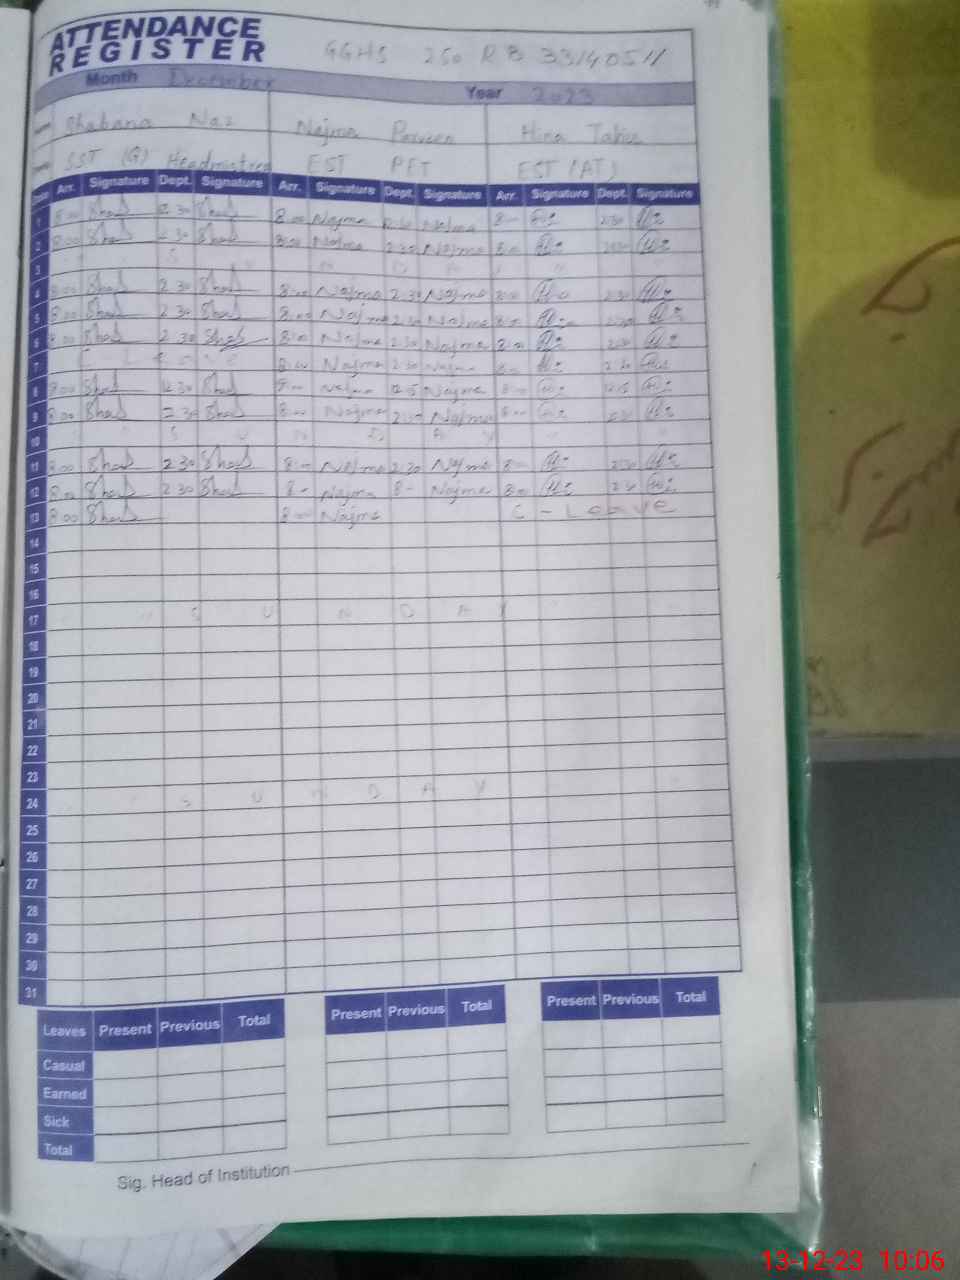 ATTENDANCE
REGISTER
GGHS 250 RB 33140511
Month December Year 2023
Shabana Naz Najma Parveen Hina Tahir
SST (G) Headmistress EST PET EST (AT)
Arr. Signature Dept. Signature Arr. Signature Dept. Signature Arr. Signature Dept. Signature
1 8:00 Shab 2 30 Shab 8:00 Najma Najma 2:30
2 8:00 Shab 2 30 Shab 8:00 Najma 2:30 Najma 8:00
3 S U N D A Y
4 8:00 Shab 2 30 Shab 8:00 Najma 2 30 Najma 8:00 2:30
5 8:00 Shab 2 30 Shab 8:00 Najma 2:30 Najma 8:00 2:30
6 8:00 Shab 2 30 Shab 8:00 Najma 2:30 Najma 8:00 2:30
7 C L e a v e 8:00 Najma 2:30 Najma 2 30
8 8:00 Shab 12 30 Shab Najma 12 15 Najma 12 15
9 8:00 Shab 2 30 Shab Najma 2:30 Najma
10 S U N D A Y
11 8:00 Shab 2 30 Shab 8:00 Najma 2 30 Najma 2:30
12 8:00 Shab 2 30 Shab 8- Najma 8- Najma 8:00
13 8:00 Shab 8:00 Najma C - Leave
14
15
16
17 S U N D A Y
18
19
20
21
22
23
24 S U N D A Y
25
26
27
28
29
30
31
Leaves Present Previous Total Present Previous Total Present Previous Total
Casual
Earned
Sick
Total
Sig. Head of Institution
13-12-23 10:06